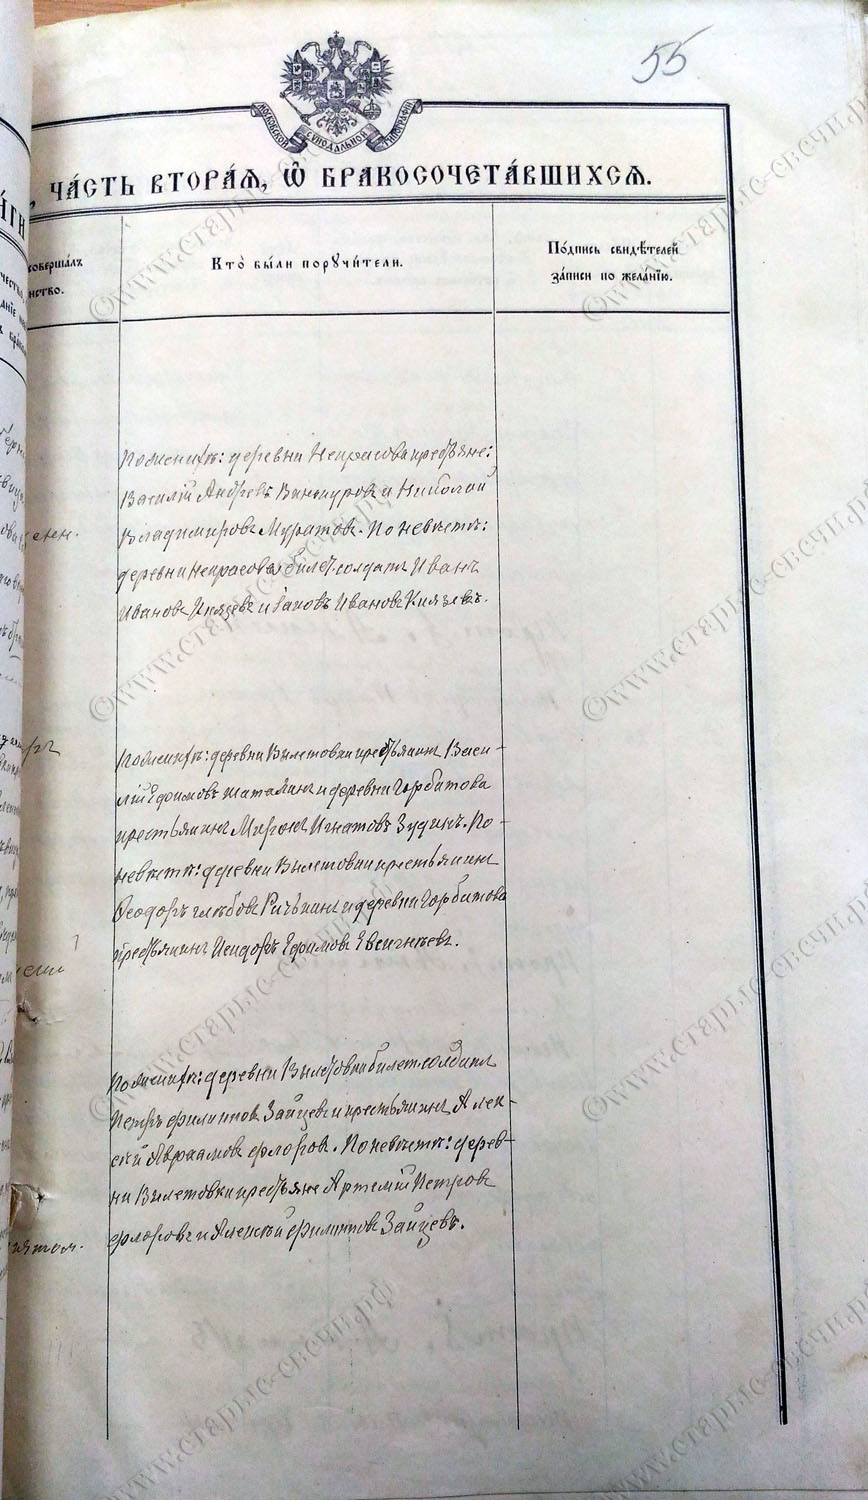 55
МОСКОВСКОЙ СѴНОДАЛЬНОЙ ТИПОГРАФІИ
ЧА́СТЬ ВТОРА́Ѧ, Ѽ БРАКОСОЧЕТА́ВШИХСѦ.
совершáлъ
нство.
Кто̀ бы́ли порꙋчи́тели.
По́дпись свидѣ́телей
за́писи по жела́нїю.
По женихѣ: деревни Некрасова крестьяне:
Василій Андреевъ Винокуровъ и Николай
Владиміровъ Муратовъ. По невѣстѣ:
деревни Некрасова билет. солдатъ Иванъ
Ивановъ Князевъ и Іаковъ Ивановъ Князевъ.
По женихѣ: деревни Вылетовки крестьянинъ Васи-
лій Ефимовъ Шаталинъ и деревни Горбатова
крестьянинъ Миронъ Игнатовъ Зудинъ. По
невѣстѣ: деревни Вылетовки крестьянинъ
Ѳеодоръ Глѣбовъ и деревни Горбатова
крестьянинъ Исидоръ Ефимовъ Евсигнѣевъ.
По женихѣ: деревни Вылетовки билет. солдатъ
Петръ Филиповъ Зайцевъ и крестьянинъ Алек-
сѣй Авраамовъ Флоровъ. По невѣстѣ: дерев-
ни Вылетовки крестьяне Артемій Петровъ
Флоровъ и Алексѣй Филиповъ Зайцевъ.
©www.старые-свечи.рф